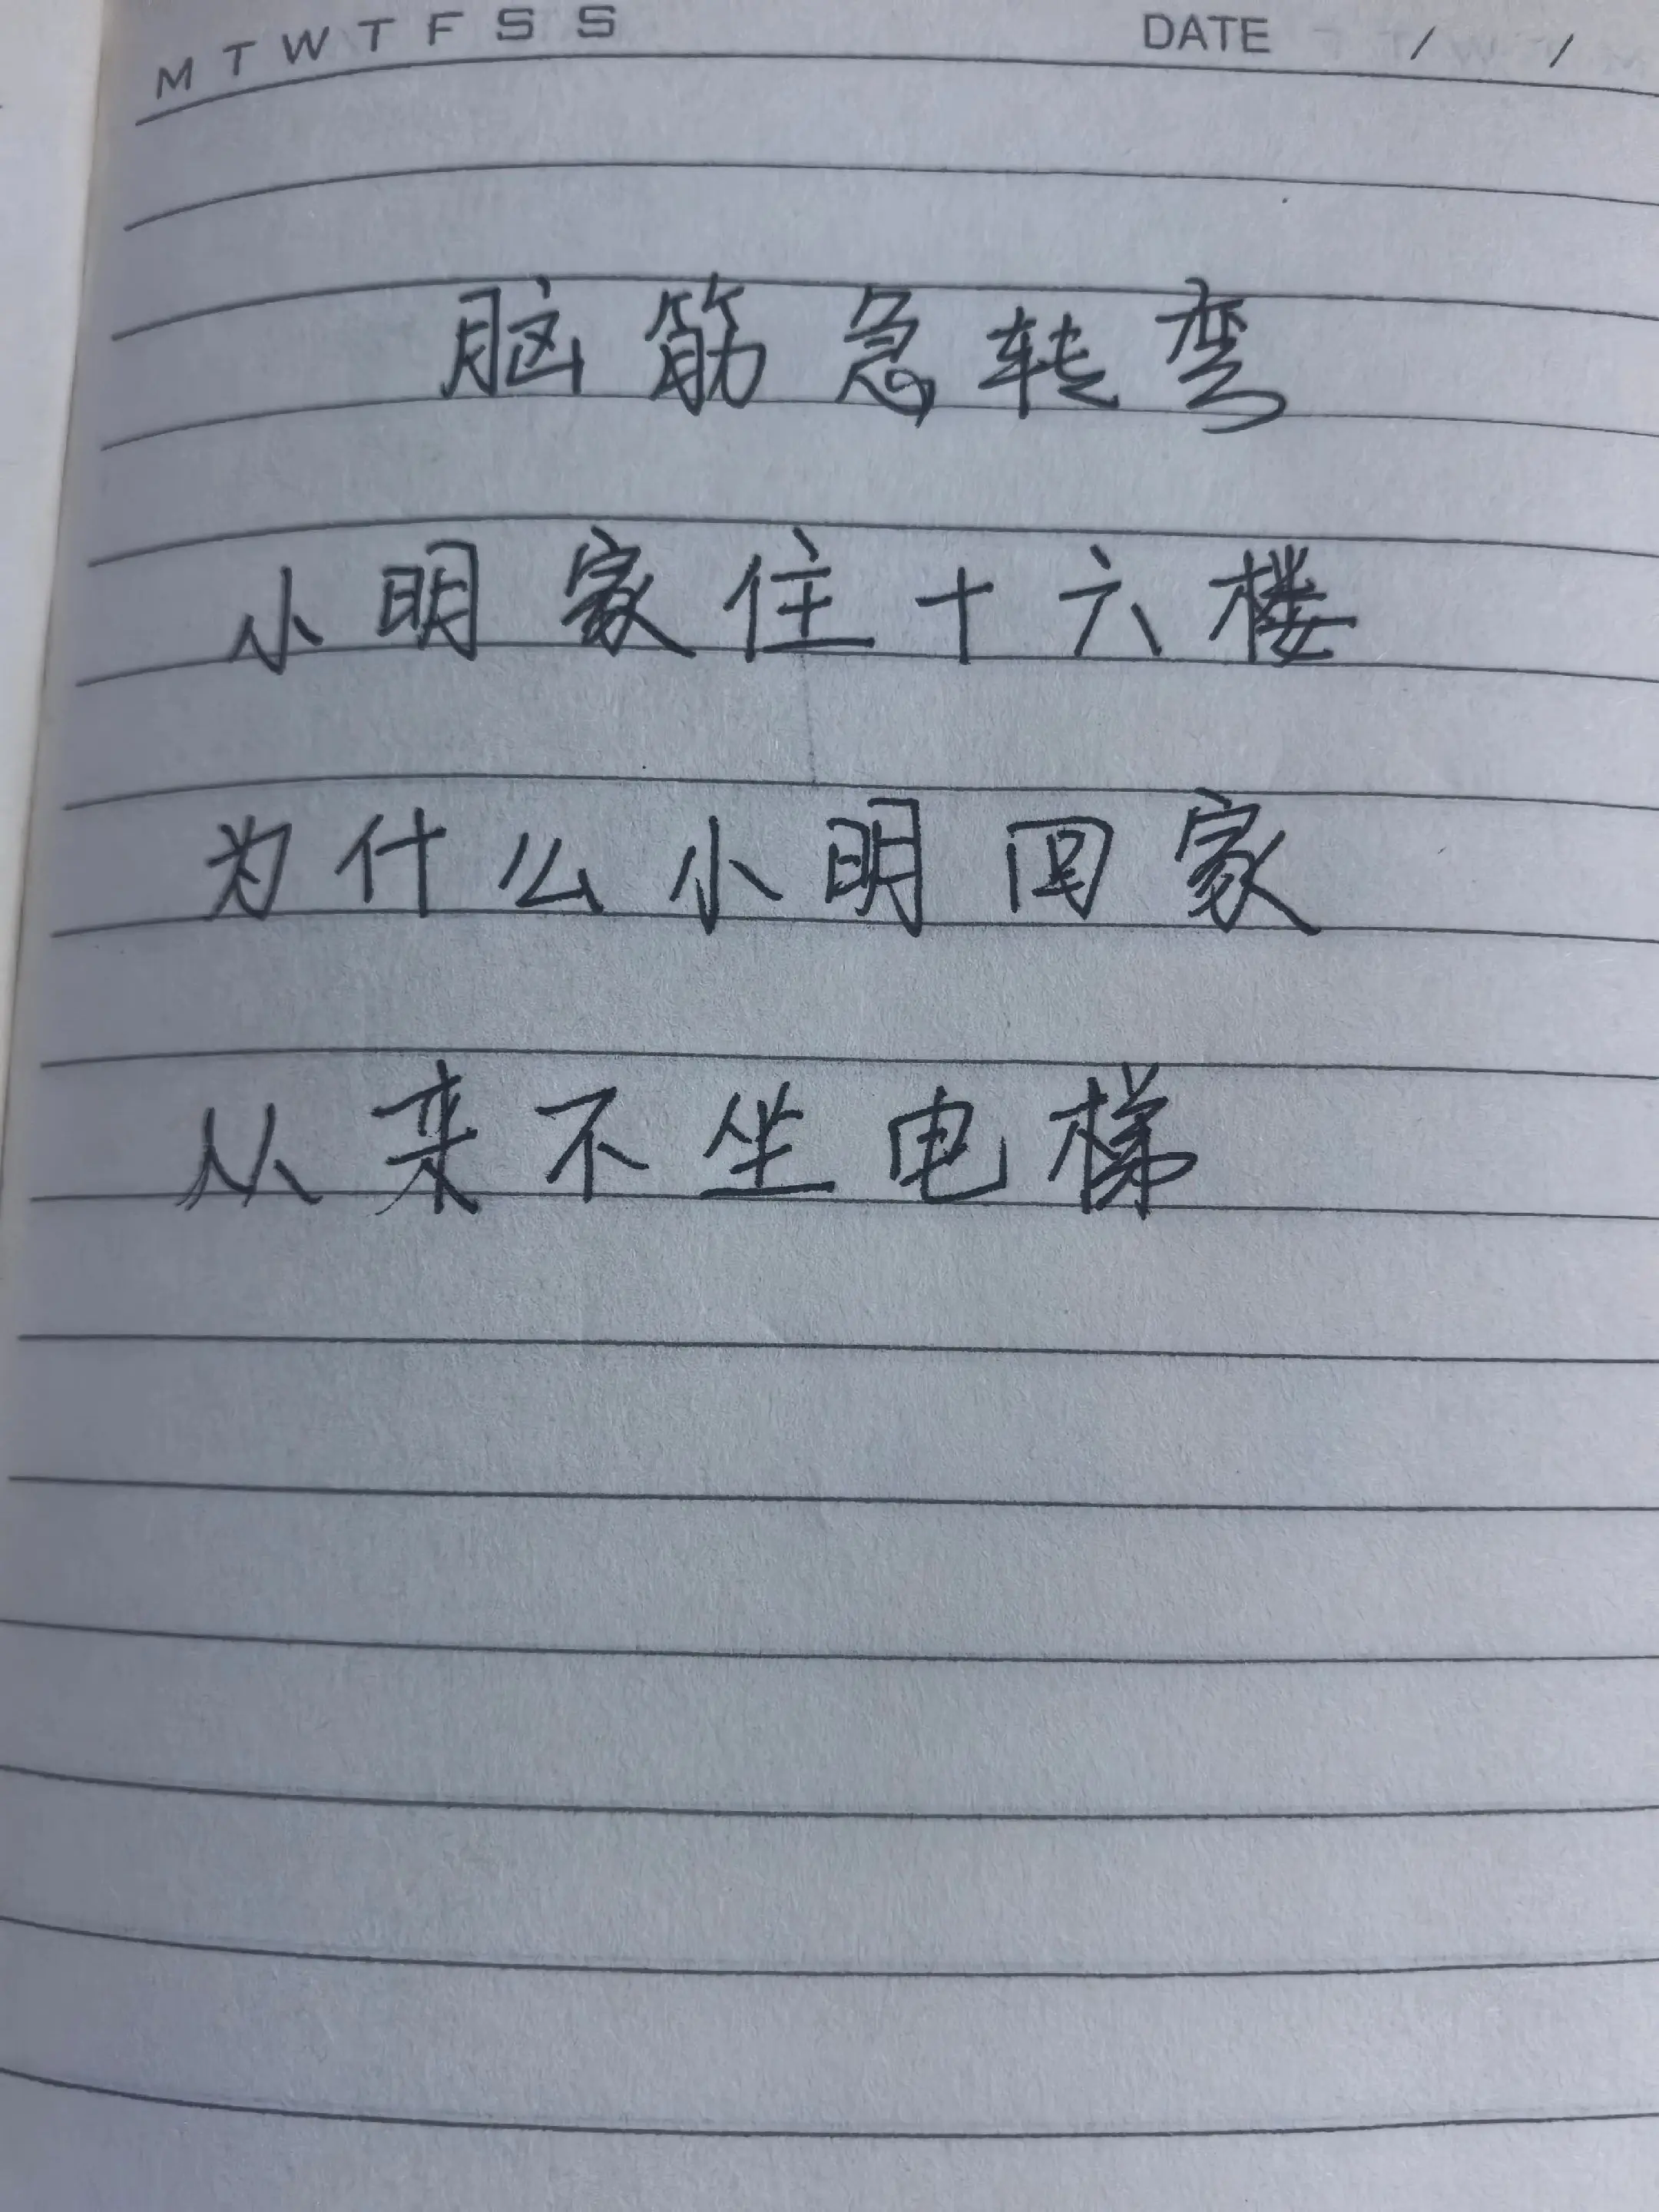 M T W T F S S DATE / /
脑筋急转弯
小明家住十六楼
为什么小明回家
从来不坐电梯